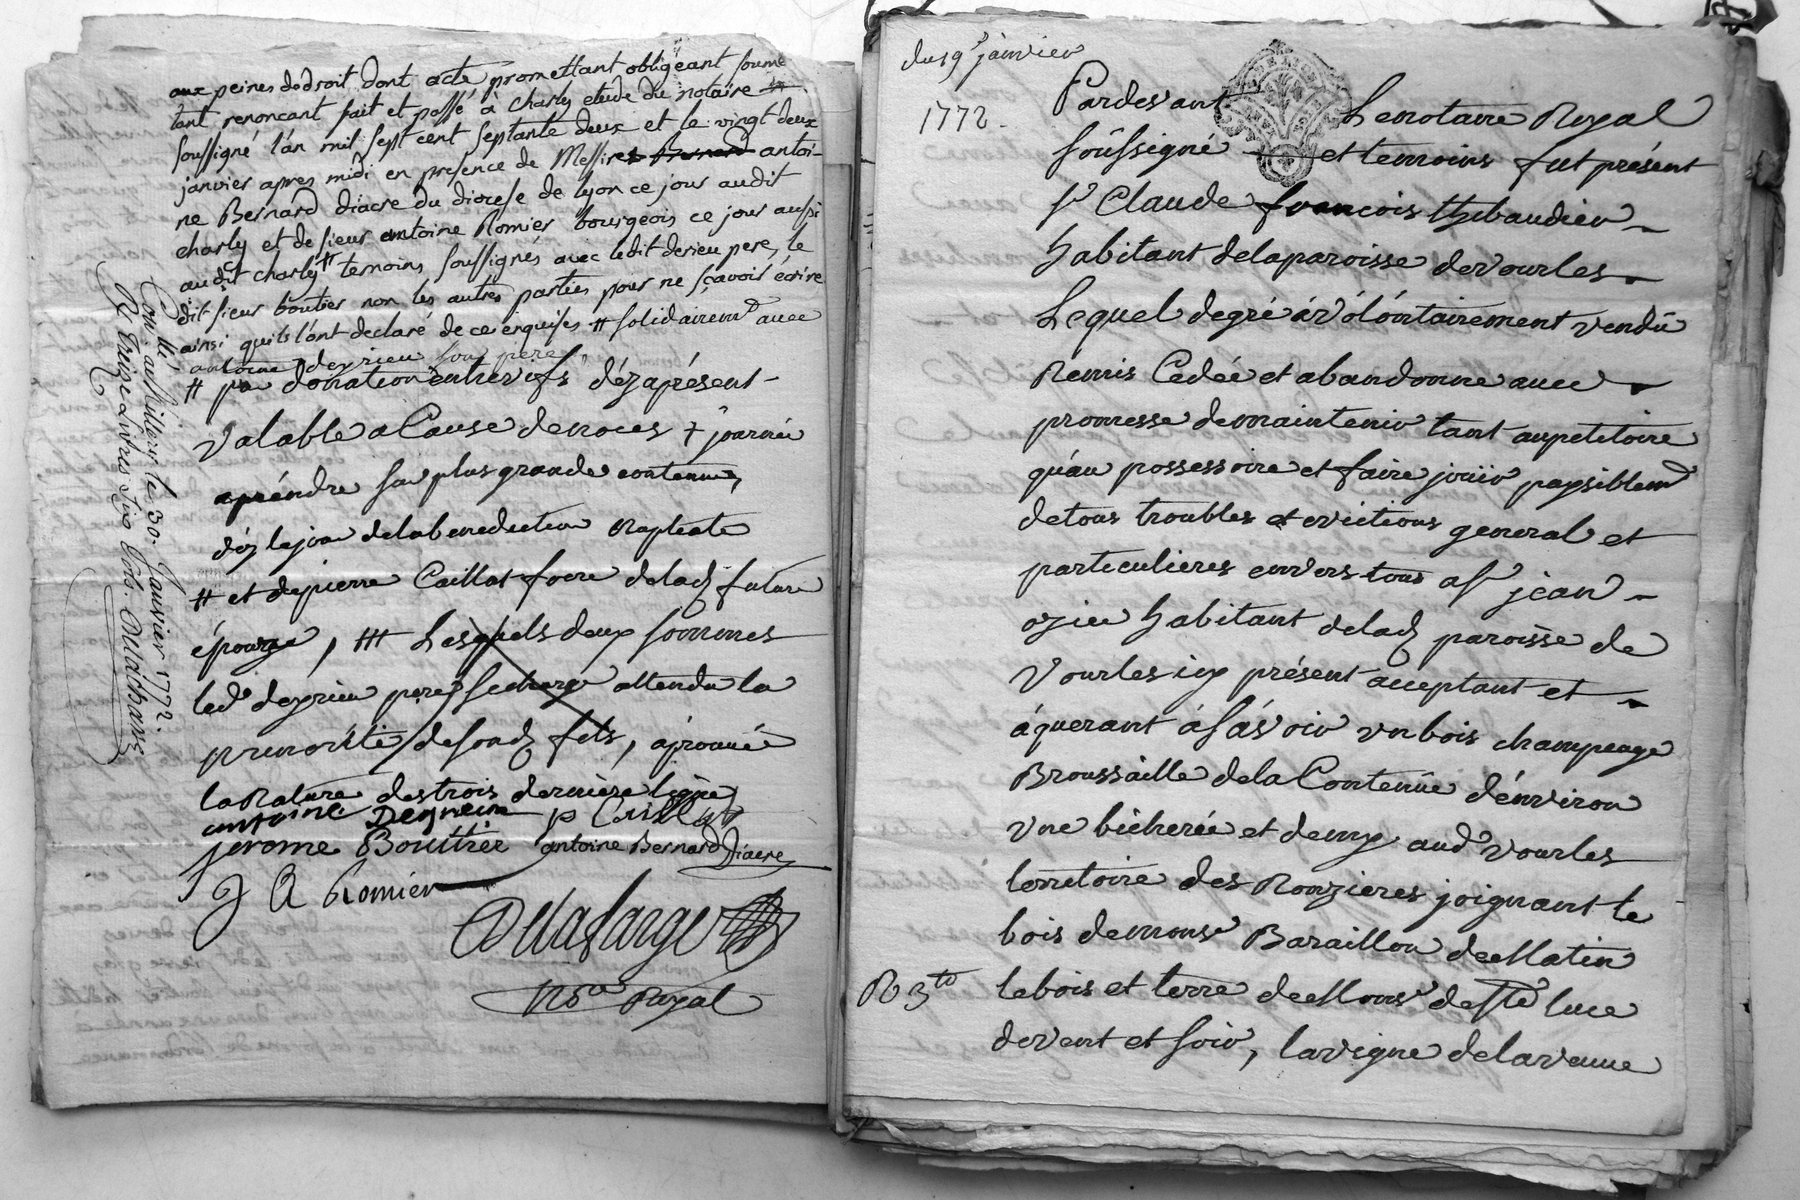 aux peines de droit dont acte promettant obligeant soume
tant renoncant fait et passé à charly etude du notaire
soussigné l'an mil sept cent septante deux et le vingt deux
janvier apres midi en presence de Messire Bernard antoi-
ne Bernard diacre du diocese de lyon ce jour audit
charly et de sieur antoine Romier bourgeois ce jour aussi
audit charly # temoins soussignés avec ledit derieu pere, le
dit sieur boutier non les autres parties pour ne sçavoir écrire
ainsi qu'ils l'ont declaré de ce enquises # solidairemt avec
antoine deyrieu son pere
# par donation entrevifs déz aprésent
valable a Cause de noces + journée
apréndre sa plus grande contenue,
déz le jour de la benediction nuptiale
# et de pierre Caillat frere de lad future
épouze, ## Lesquels deux sommes
led deyrieu pere se charge attendu la
minorité de sond fils, aprouvé
la Rature des trois derniere ligne
antoine Deyrieu p Caillat
jerome Bouttier antoine Bernard Diacre
J A Romier
Delafarge
Nore Royal
Con.llé a Millery le 30. Janvier 1772.
R Treize Livres
du 9e janvier
1772.
Pardevant Le notaire Royal
soûssigné et temoins fut présent
sr Claude francois thibaudier
habitant de la paroisse de vourles
Lequel de gré à volóntairement vendû
Remis Cedée et abandonne avec
promesse de maintenir tant aupetitoire
qu'au possessoire et faire jouïr paysiblemt
de tous troubles et evictions general et
particulieres envers tous a sr jean
ozier habitant de lad paroisse de
Vourles icy présent acceptant et
áquerant á sávoir un bois champeage
Broussaille de la Contenüe d'énviron
une bicherée et demy aud vourles
territoire des Ronzieres joignant le
bois de monsr Baraillon de Matin
R 3tt le bois et terre de Monsr de Ste luce
de vent et soir, la vigne de la veuve